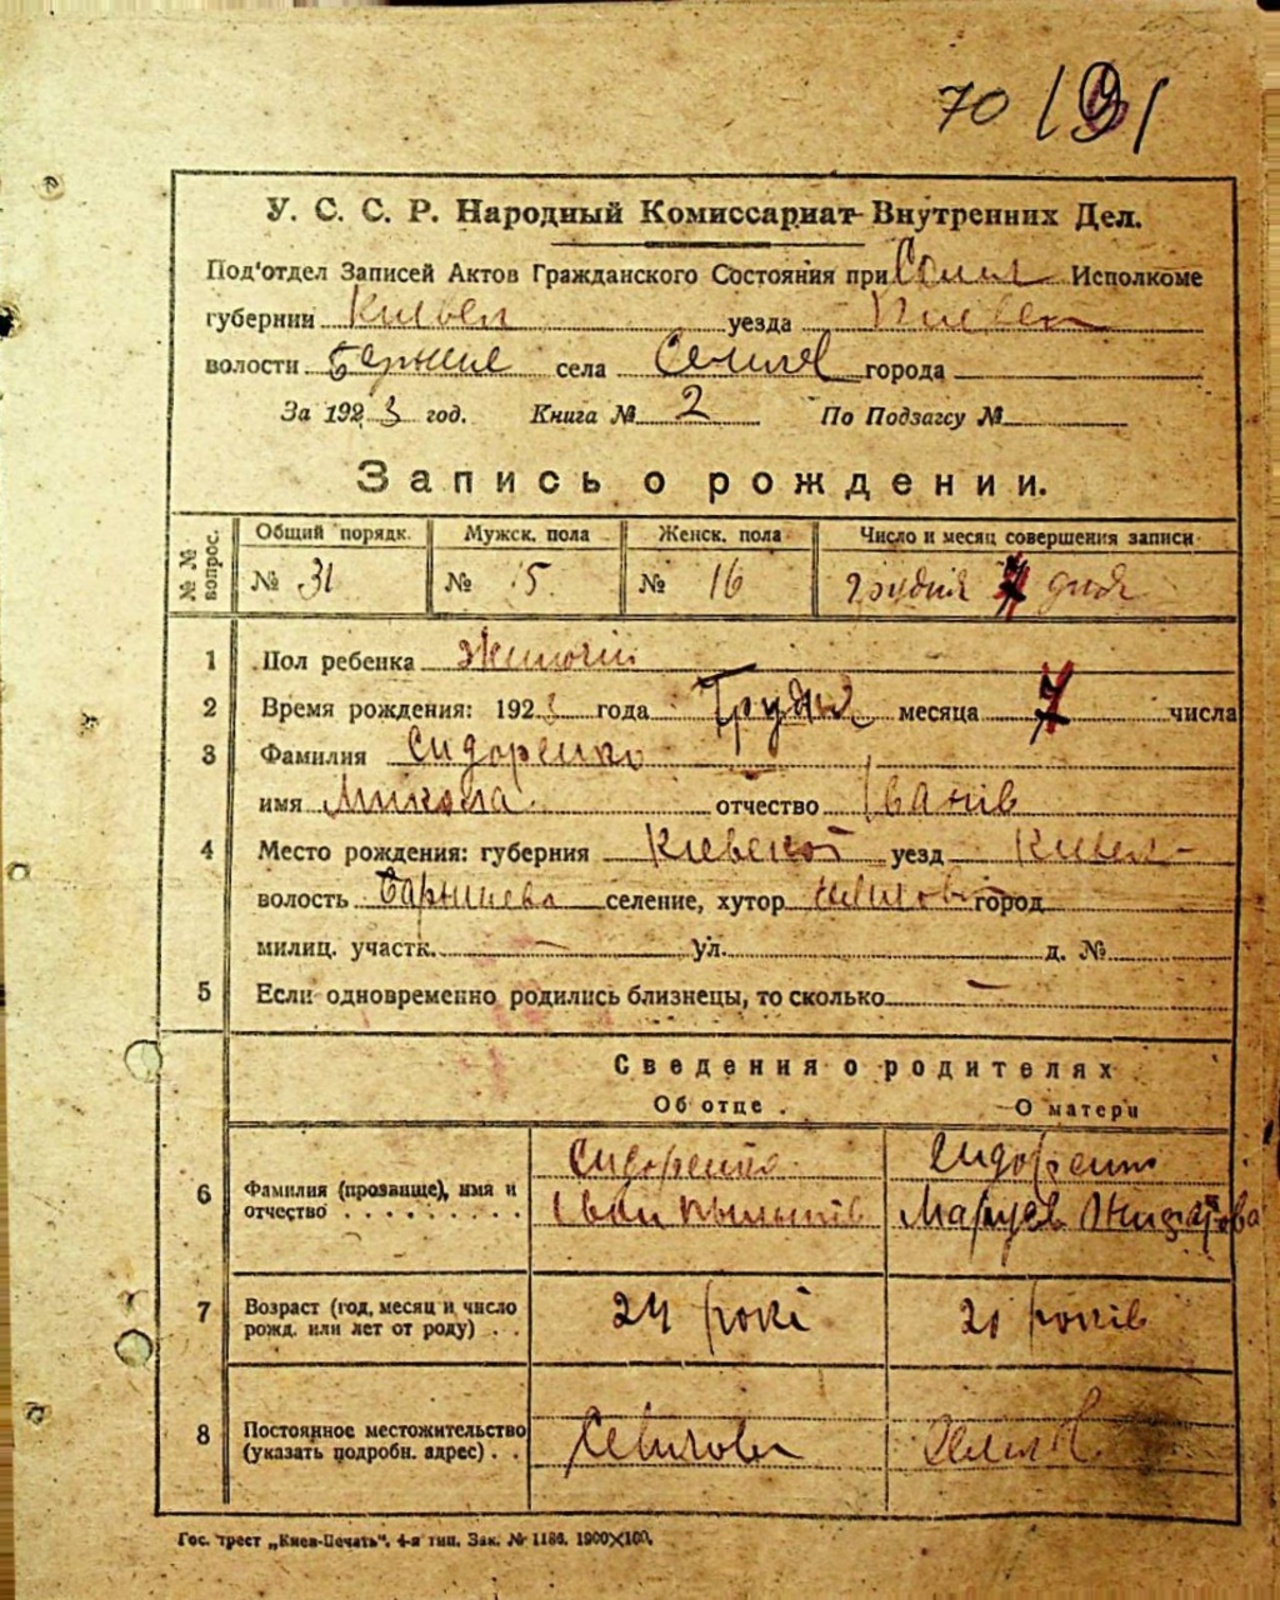 70 191
У. С. С. Р. Народный Комиссариат Внутренних Дел.
Под'отдел Записей Актов Гражданского Состояния при Исполкоме
губернии Киевск уезда Киевск
волости села города
За 1923 год. Книга № 2 По Подзагсу №
Запись о рождении.
№№ вопрос. Общий порядк. Мужск. пола Женск. пола Число и месяц совершения записи
№ 31 № 15 № 16 грудня 7 дня
1 Пол ребенка
2 Время рождения: 1923 года Грудня месяца 7 числа
3 Фамилия Сидоренко
имя Микола отчество Іванів
4 Место рождения: губерния Киевской уезд Киевск
волость Баришева селение, хутор город
милиц. участк. ул. д. №
5 Если одновременно родились близнецы, то сколько —
Сведения о родителях
Об отце. О матери
6 Фамилия (прозвище), имя и отчество Сидоренко Іван Сидоренко
7 Возраст (год, месяц и число рожд. или лет от роду) 24 рокі 20 років
8 Постоянное местожительство (указать подробн. адрес)
Гос. трест „Киев-Печать“. 4-я тип. Зак. № 1186. 1900×100.